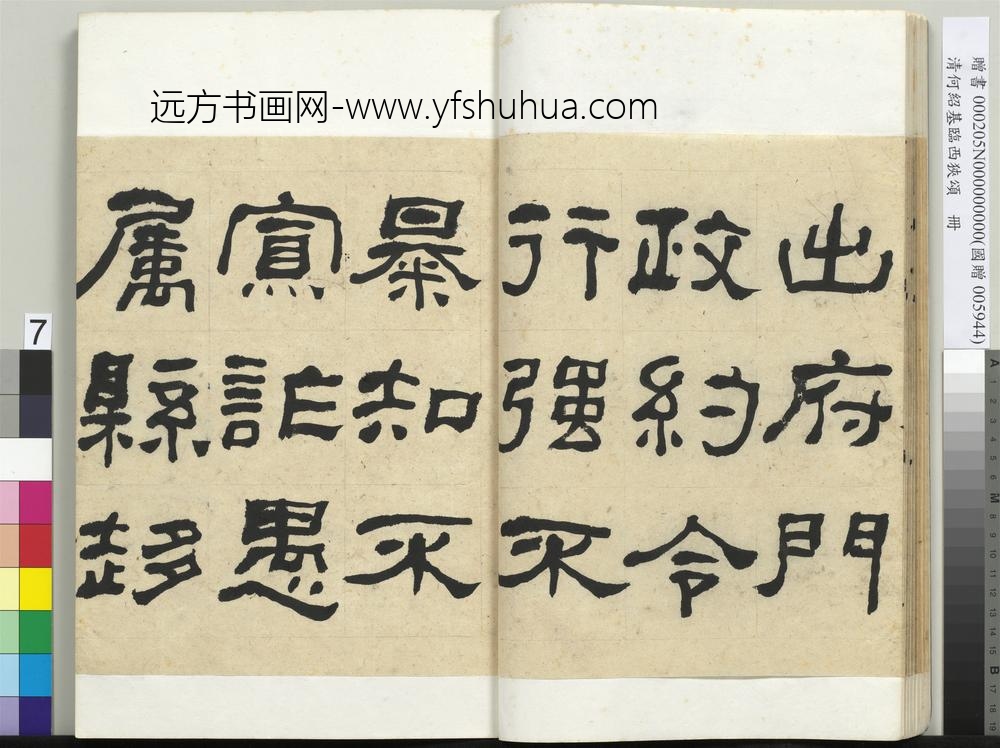 远方书画网-www.yfshuhua.com
出府門
政約令
行强不
暴知不
寡詐愚
属縣趍
贈書 000205N000000000(國贈 005944)
清何紹基臨西狹頌 冊
7
A 1 2 3 4 5 6 M 8 9 10 11 12 13 14 15 B 17 18 19